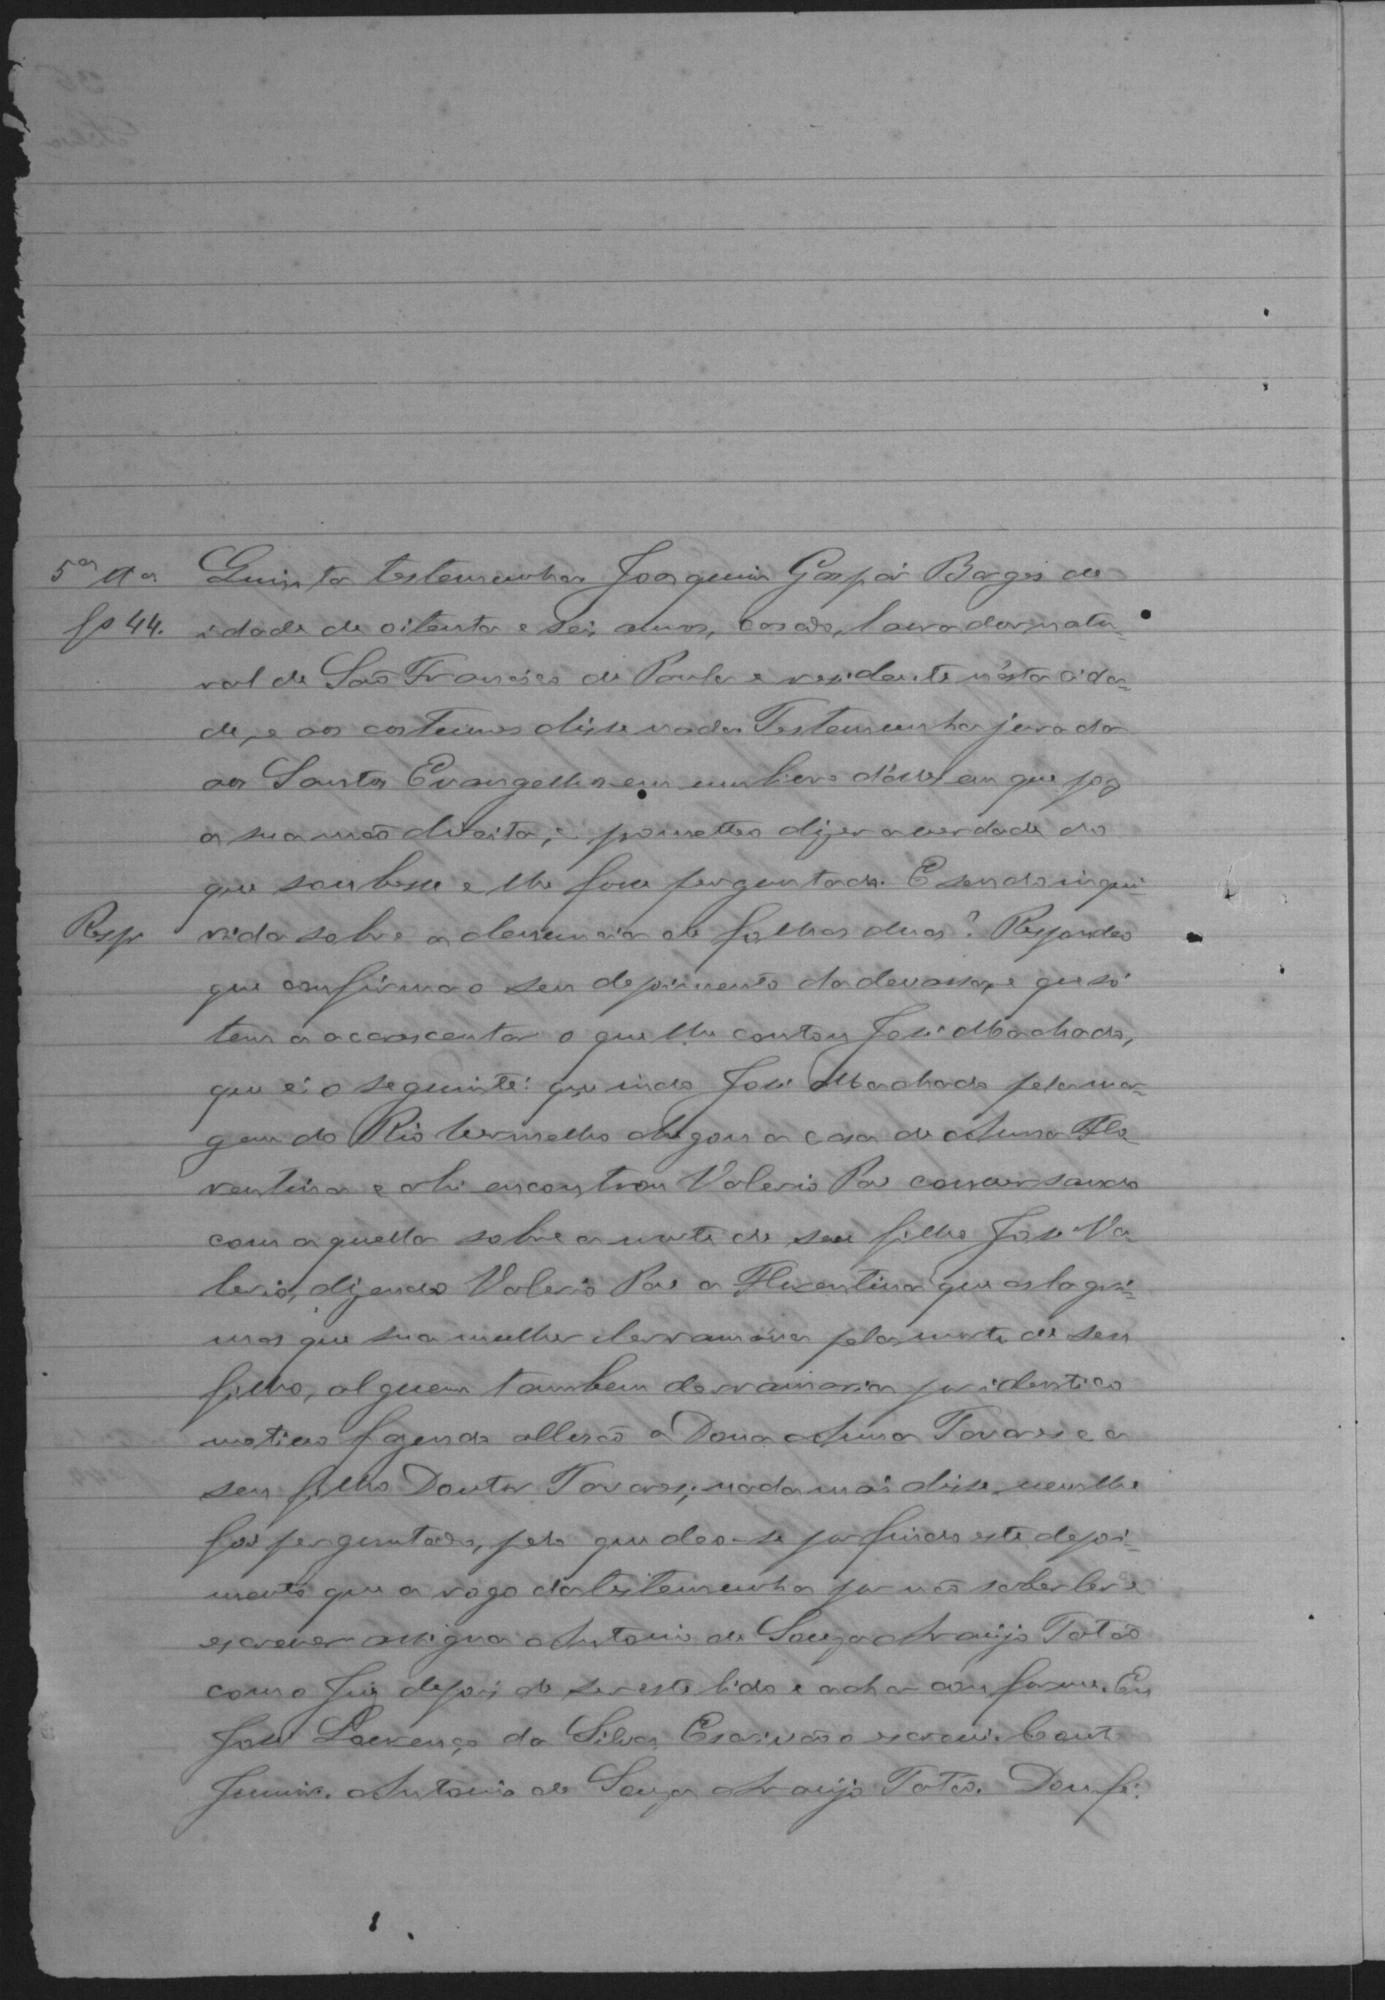 5ª tta Quinta testemunha Joaquim Gaspar Borges de
fs 44. idade de oitenta e seis annos, casado, lavrador, natu-
ral de São Francisco de Paula e residente n'ésta cida-
de, e aos costumes disse nada. Testemunha jurada
aos Santos Evangelhos em um livro d'élles em que poz
a sua mão direita, e prometteo dizer a verdade do
que soubesse e lhe fosse perguntado. E sendo inqui-
Respr rida sobre a denuncia de folhas duas? Respondeo
que confirma o seu depoimento da devassa, e que só
tem a accrescentar o que lhe contou José Machado,
que é o seguinte: que indo José Machado pela mar-
gem do Rio Vermelho chegou a casa de Anna Flo-
rentina e ahi encontrou Valerio Pae conversando
com aquella sobre a morte de seu filho José Va-
lerio, dizendo Valerio Pae a Florentina que as lagri-
mas que sua mulher derramava pela morte de seu
filho, alguem tambem derramaria por identico
motivo fazendo allusão a Dona Anna Tavares e a
seu filho Doutor Tavares; nada mais disse nem lhe
foi perguntado, pelo que deo-se por findo este depoi-
mento que a rogo da testemunha por não saber ler e
escrever assigna Antonio de Souza Araujo Tatão
com o Juiz depois de ser este lido e achar conforme. Eu
José Lourenço da Silva, Escrivão o escrevi.
Junior. Antonio de Souza Araujo Tatão. Dou fé.